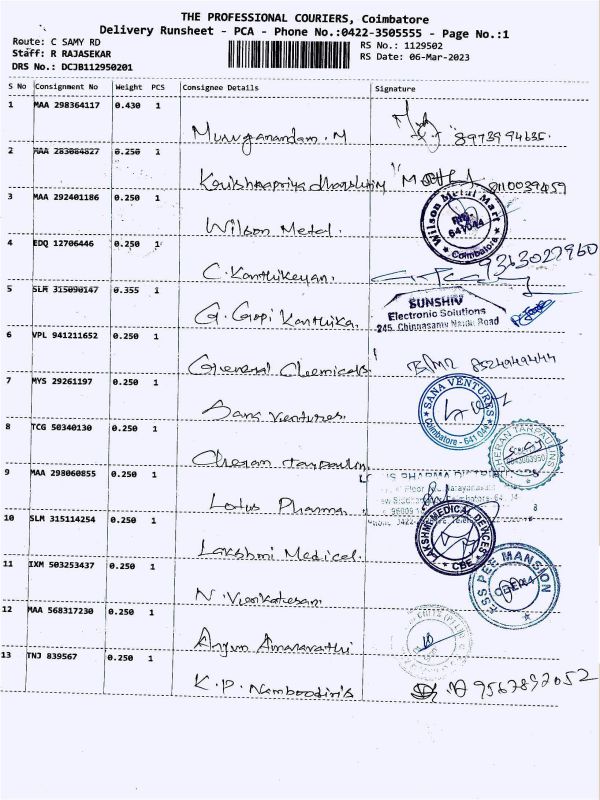 THE PROFESSIONAL COURIERS, Coimbatore
Delivery Runsheet - PCA - Phone No.:0422-3505555 - Page No.:1
Route: C SAMY RD
Staff: R RAJASEKAR
DRS No.: DCJB112950201
RS No.: 1129502
RS Date: 06-Mar-2023
S No Consignment No Weight PCS Consignee Details Signature
1 MAA 298364117 0.430 1
Muruganandam.M 8973994635.
2 MAA 283084827 0.250 1
9110039459
3 MAA 292401186 0.250 1
Wilson Metal.
Wilson Metal Mart
641044
Coimbatore
4 EDQ 12706446 0.250 1
C. Karthikeyan. 9363027960
5 SLM 315090147 0.355 1
G. Gopi Karthika.
SUNSHIV
Electronic Solutions
245, Chinnasamy Naidu Road
6 VPL 941211652 0.250 1
General Chemicals 8524949444
7 MYS 29261197 0.250 1
Sana Ventures.
SANA VENTURES
Coimbatore - 641 044
8 TCG 50340130 0.250 1
Cheran Tarpaulin
CHERAN TARPAULINS
9 MAA 298060855 0.250 1
Lotus Pharma.
10 SLM 315114254 0.250 1
Lakshmi Medical.
LAKSHMI MEDICAL DEVICES
CBE
11 IXM 503253437 0.250 1
N. Venkatesan
ESS PEE MANSION
12 MAA 568317230 0.250 1
Amararathi
13 TNJ 839567 0.250 1
K.P. Namboodiris 9567892052